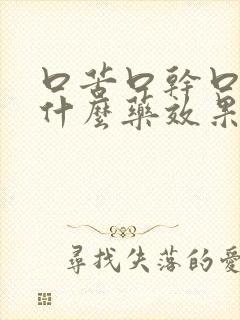 口苦口幹口
什麼藥效果
尋找失落的愛